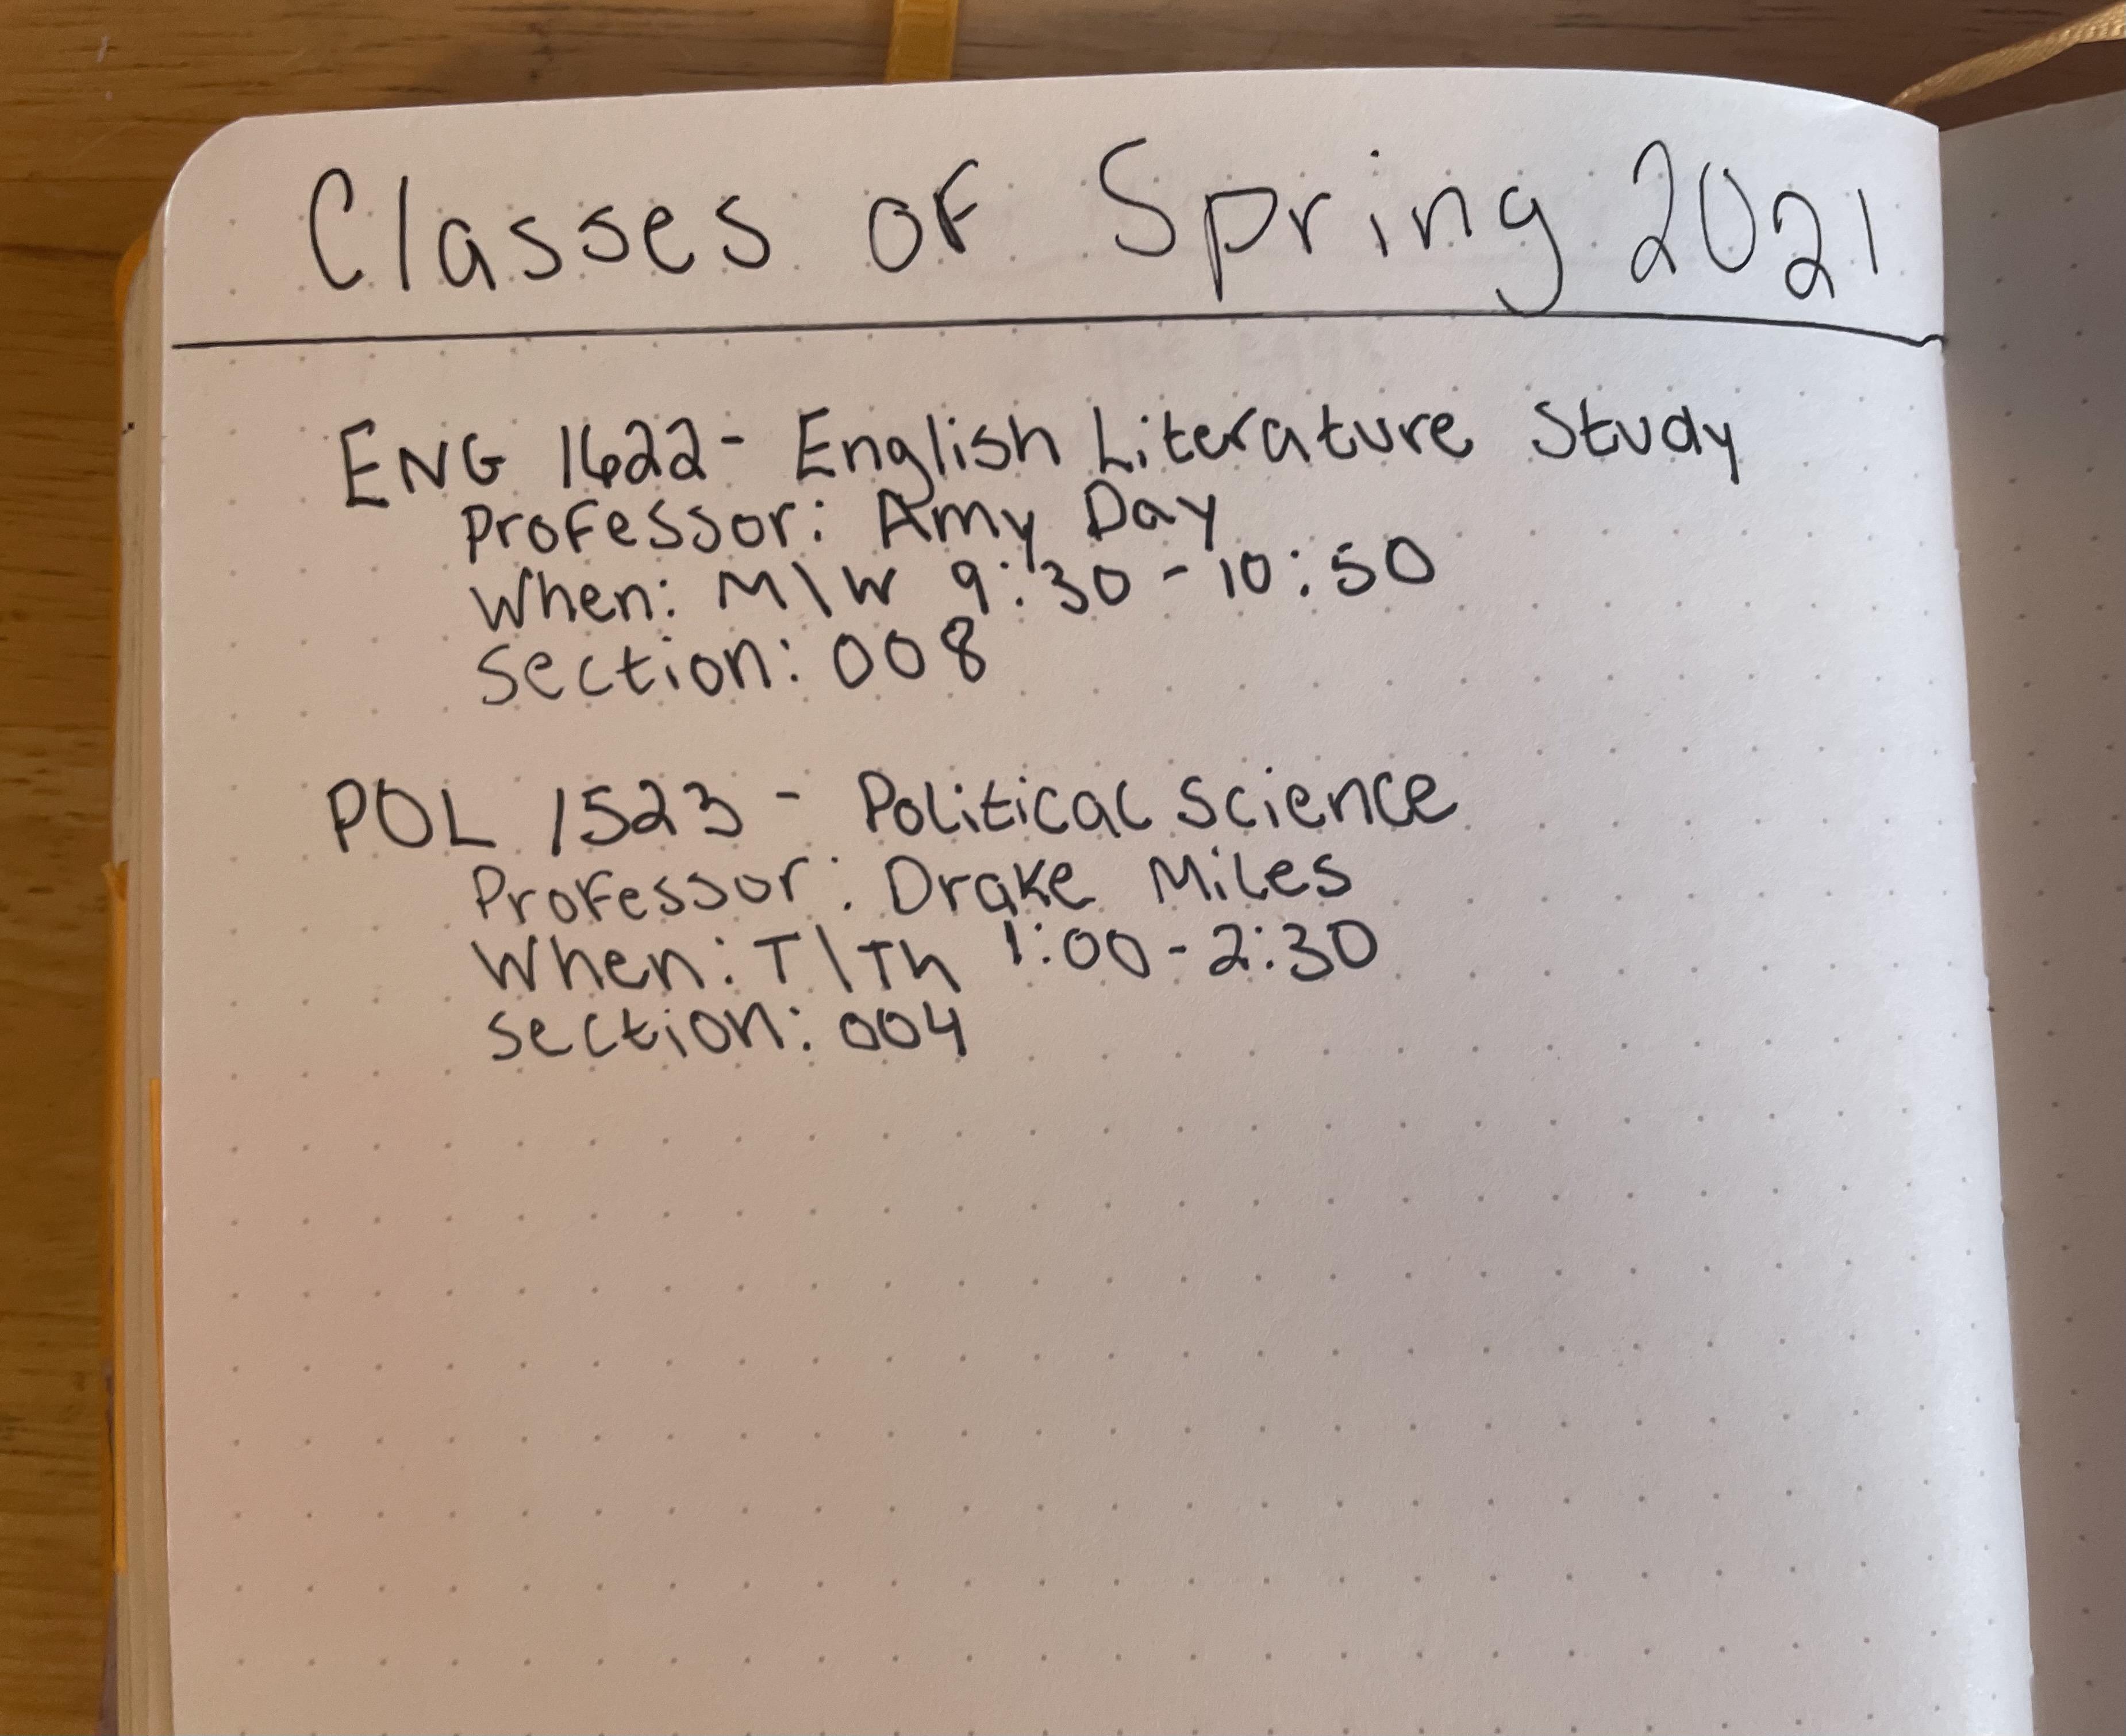 Classes of Spring 2021
ENG 1622- English Literature Study
Professor: Amy Day
When: M\W 9:30-10:50
Section: 008
POL 1523 - Political Science
Professor: Drake Miles
When: T\Th 1:00-2:30
Section: 004